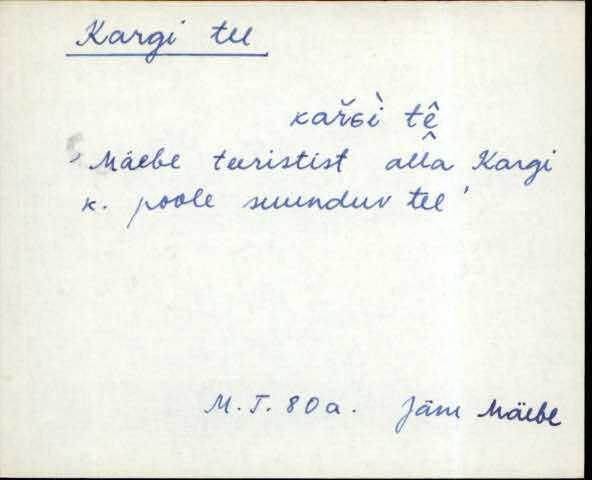 Kargi tee
kar̆Gi̇̀ tê
'Mäebe teeristist alla Kargi
k. poole suunduv tee'
M.T. 80a. Jäm Mäebe